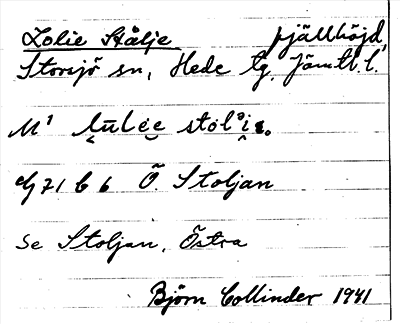 Lolie Stålje fjällhöjd
Storsjö sn, Hede tg. Jämtl. l.
M¹
G 71 b 6 Ö. Stoljan
Se Stoljan, Östra
Björn Collinder 1941